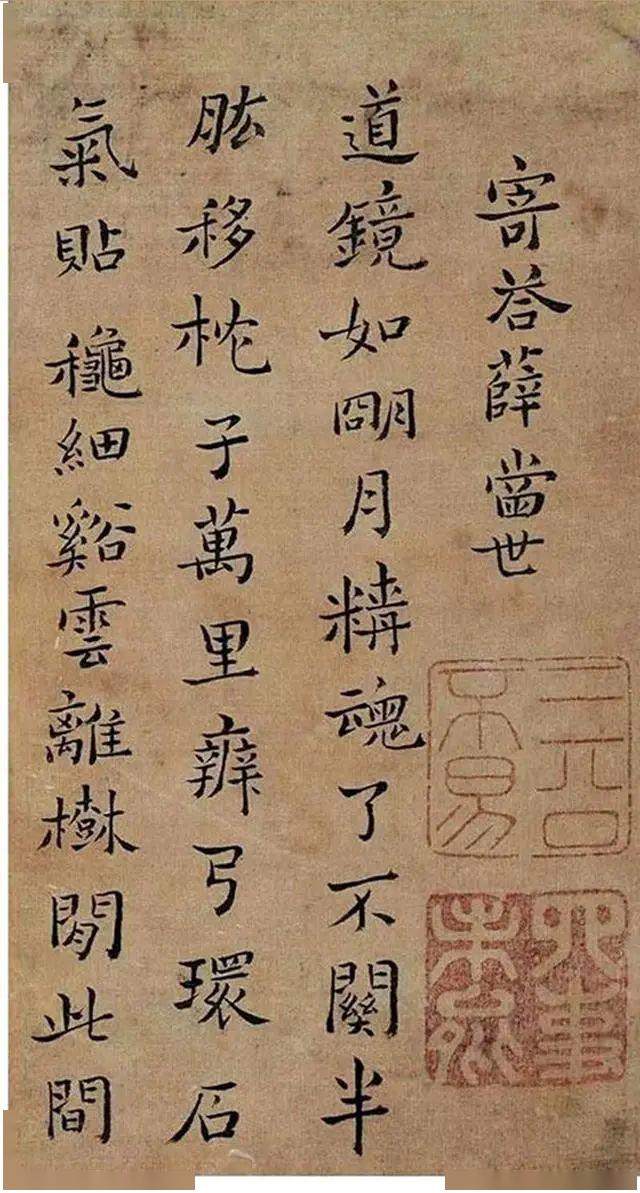 寄荅薛當世
道鏡如朙月精魂了不關半
肱移枕子萬里辨弓環石
氣貼穐細谿雲離樹閒此間
三公不易